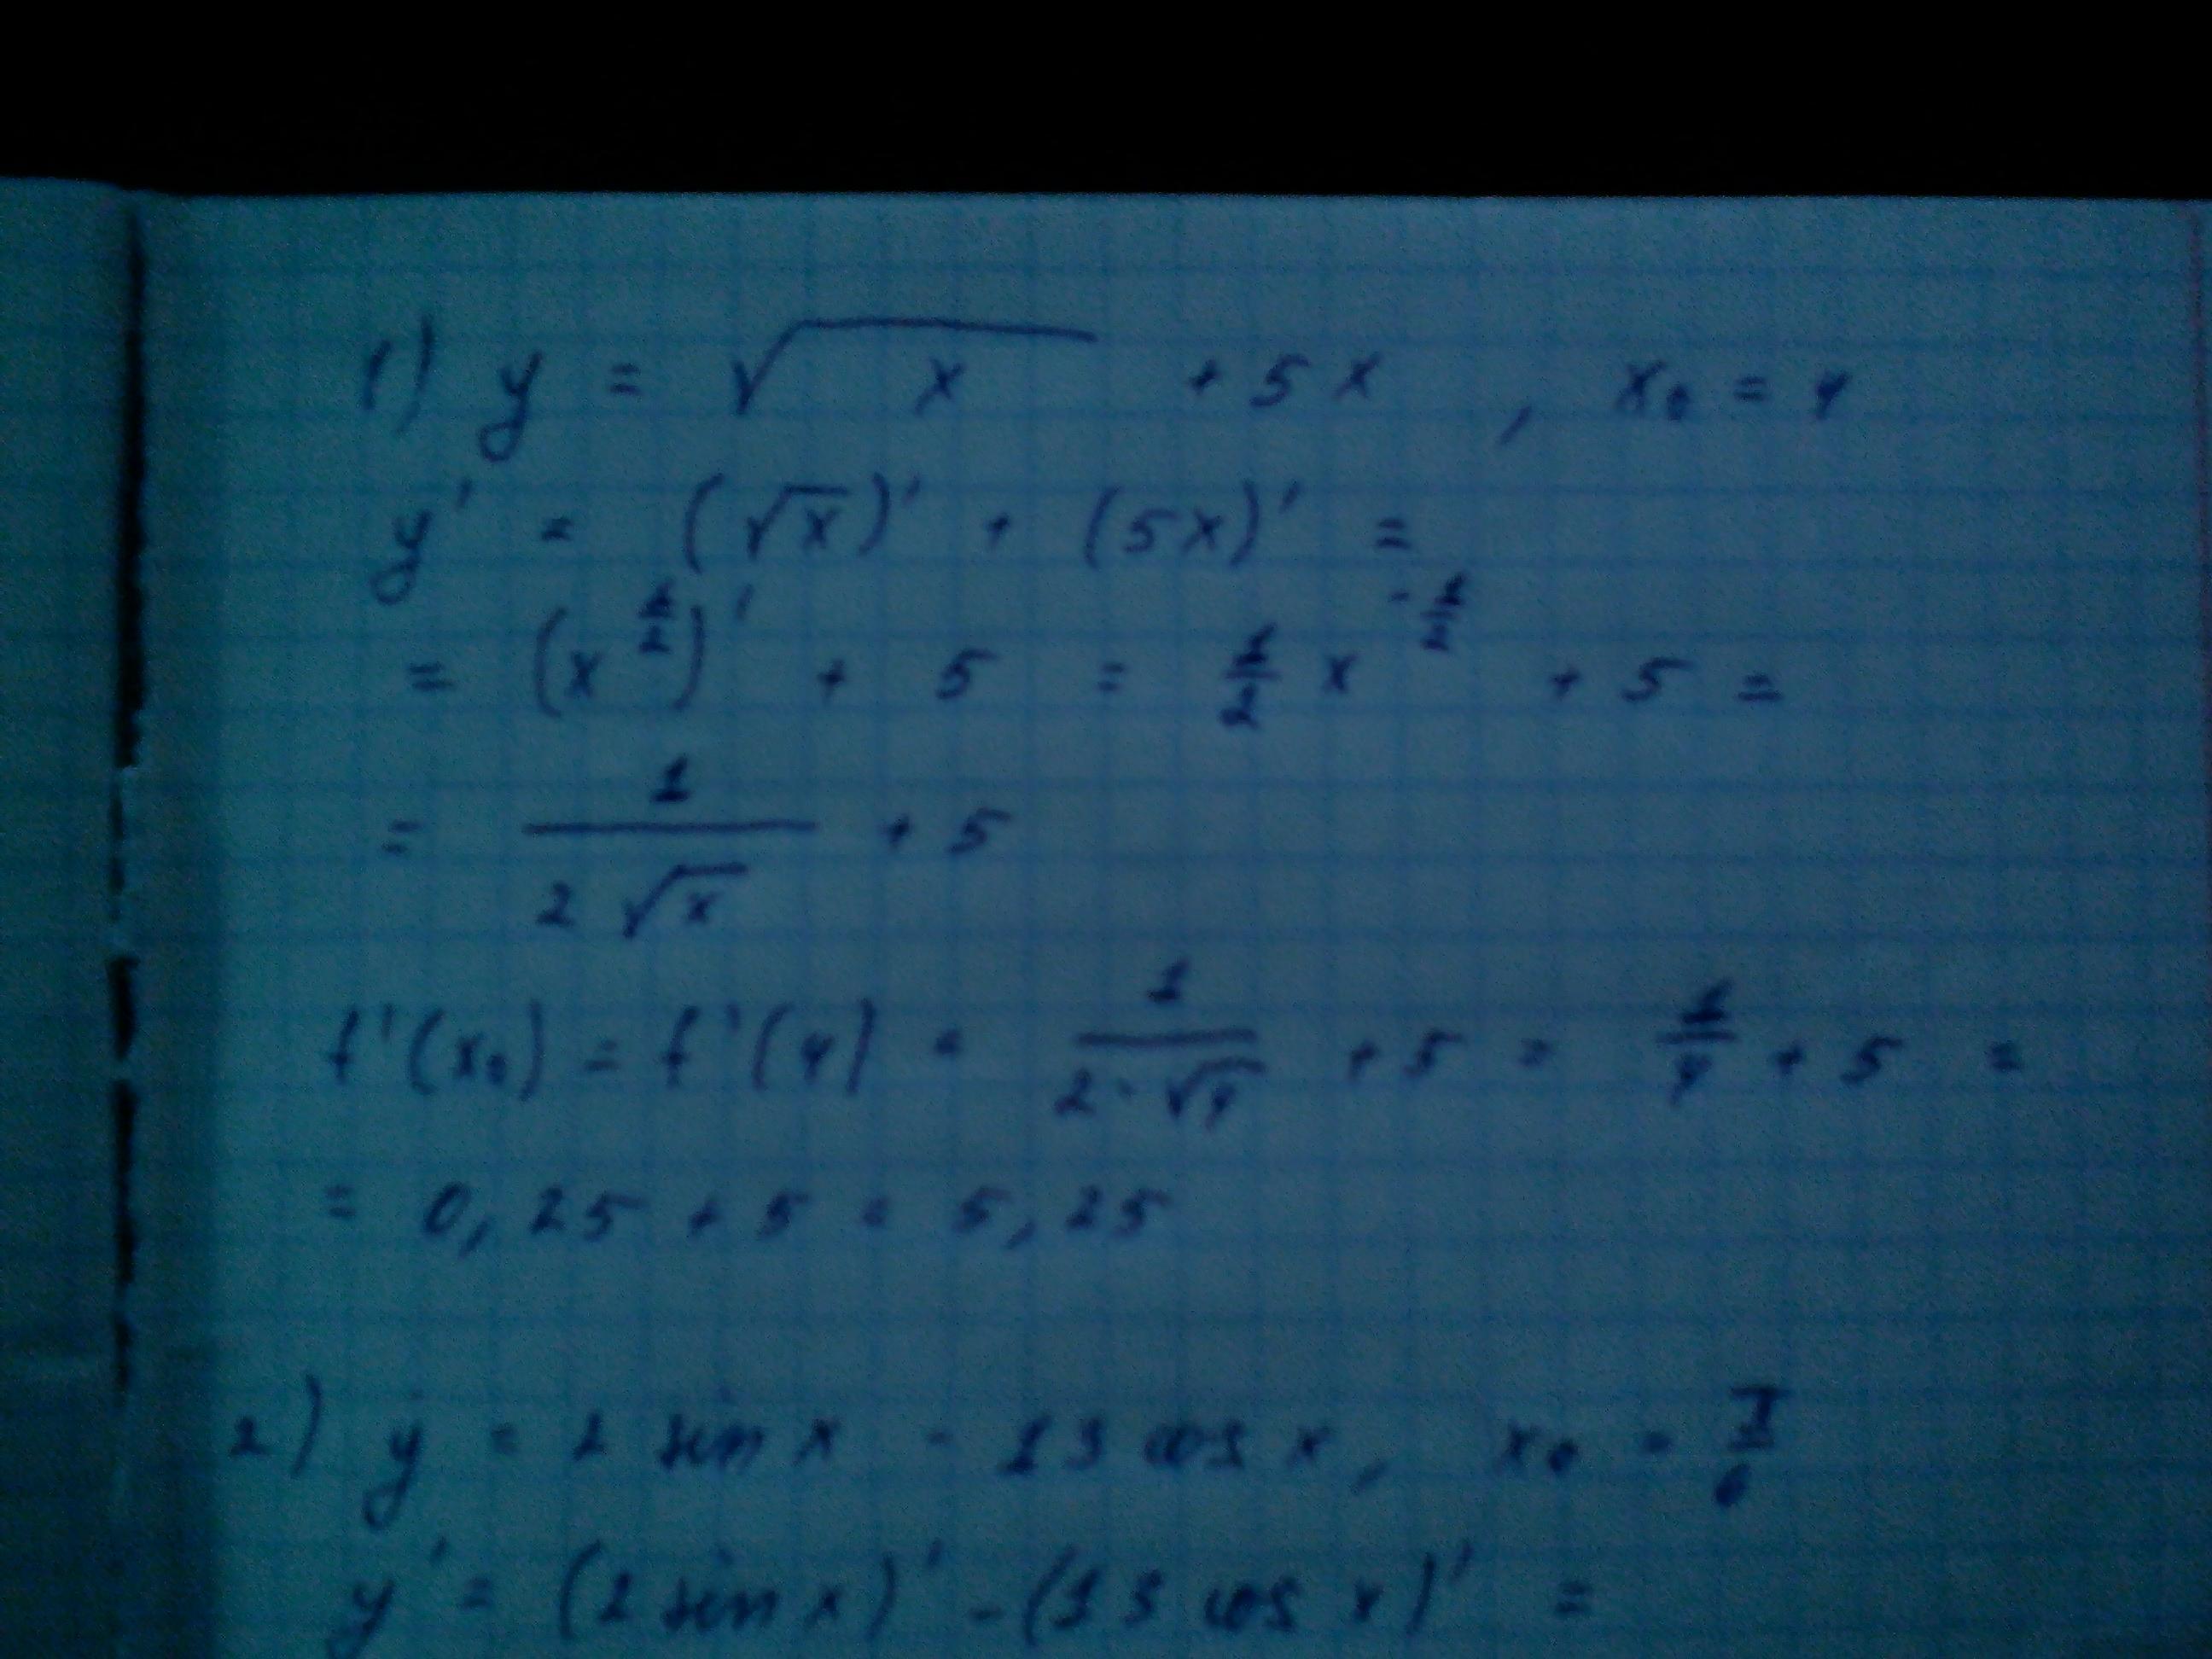 1) y = √x + 5x , x₀ = 4
y' = (√x)' + (5x)' =
= (x^½)' + 5 = ½ x^-½ + 5 =
= 1/(2√x) + 5
f'(x₀) = f'(4) = 1/(2·√4) + 5 = 1/4 + 5 =
= 0,25 + 5 = 5,25
2) y = 2 sin x - 13 cos x, x₀ = π/6
y' = (2 sin x)' - (13 cos x)' =